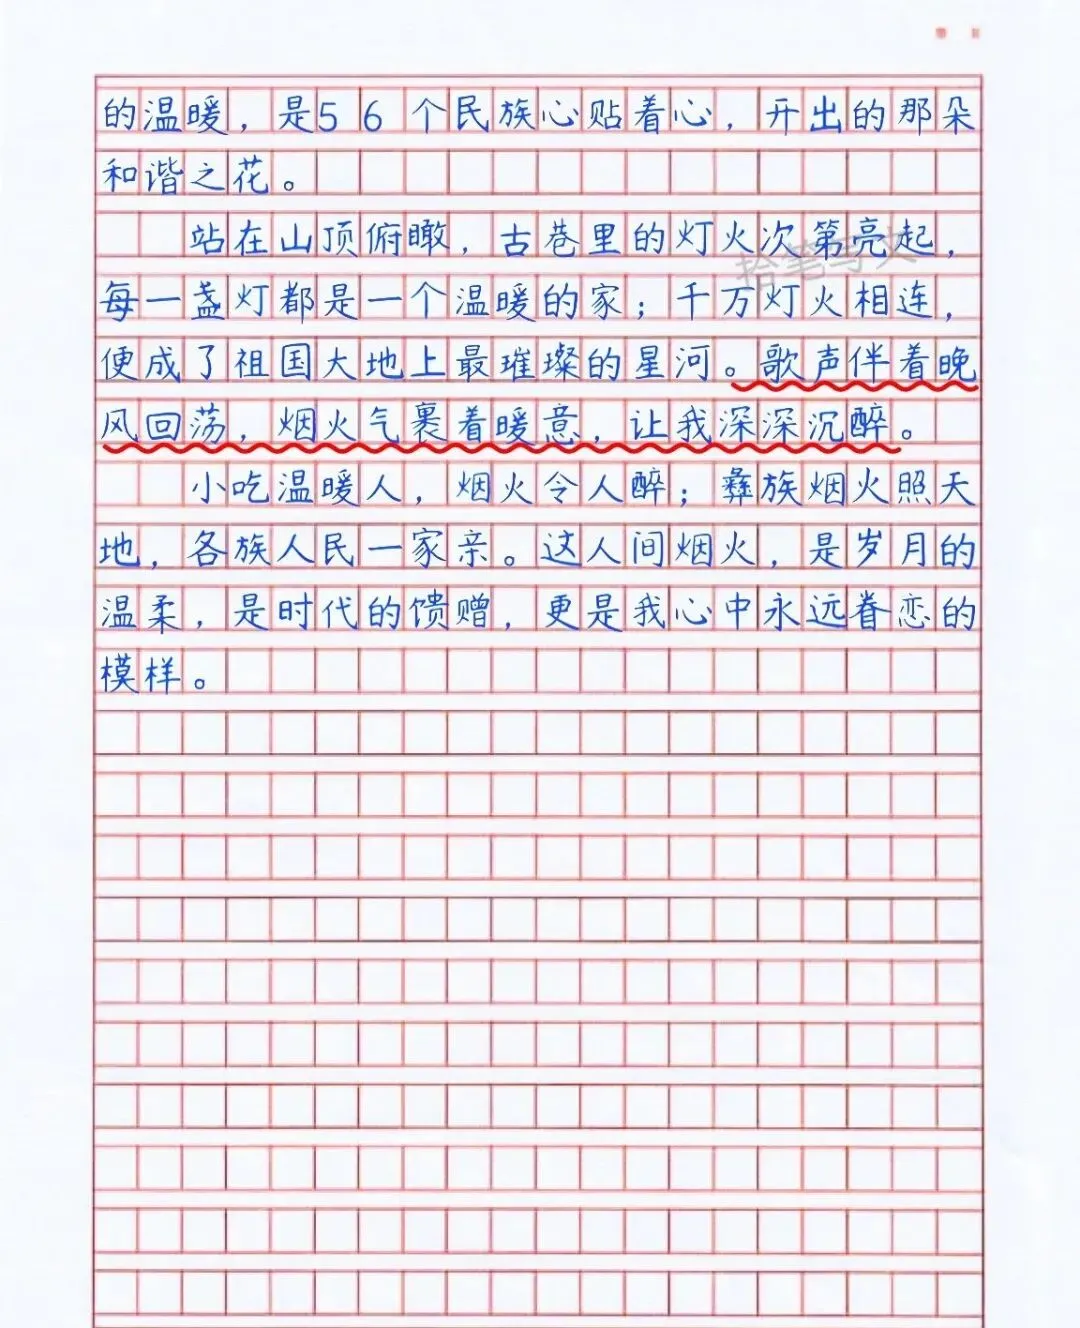 的温暖，是56个民族心贴着心，开出的那朵
和谐之花。
站在山顶俯瞰，古巷里的灯火次第亮起，
每一盏灯都是一个温暖的家；千万灯火相连，
便成了祖国大地上最璀璨的星河。歌声伴着晚
风回荡，烟火气裹着暖意，让我深深沉醉。
小吃温暖人，烟火令人醉；彝族烟火照天
地，各族人民一家亲。这人间烟火，是岁月的
温柔，是时代的馈赠，更是我心中永远眷恋的
模样。
拾笔写文